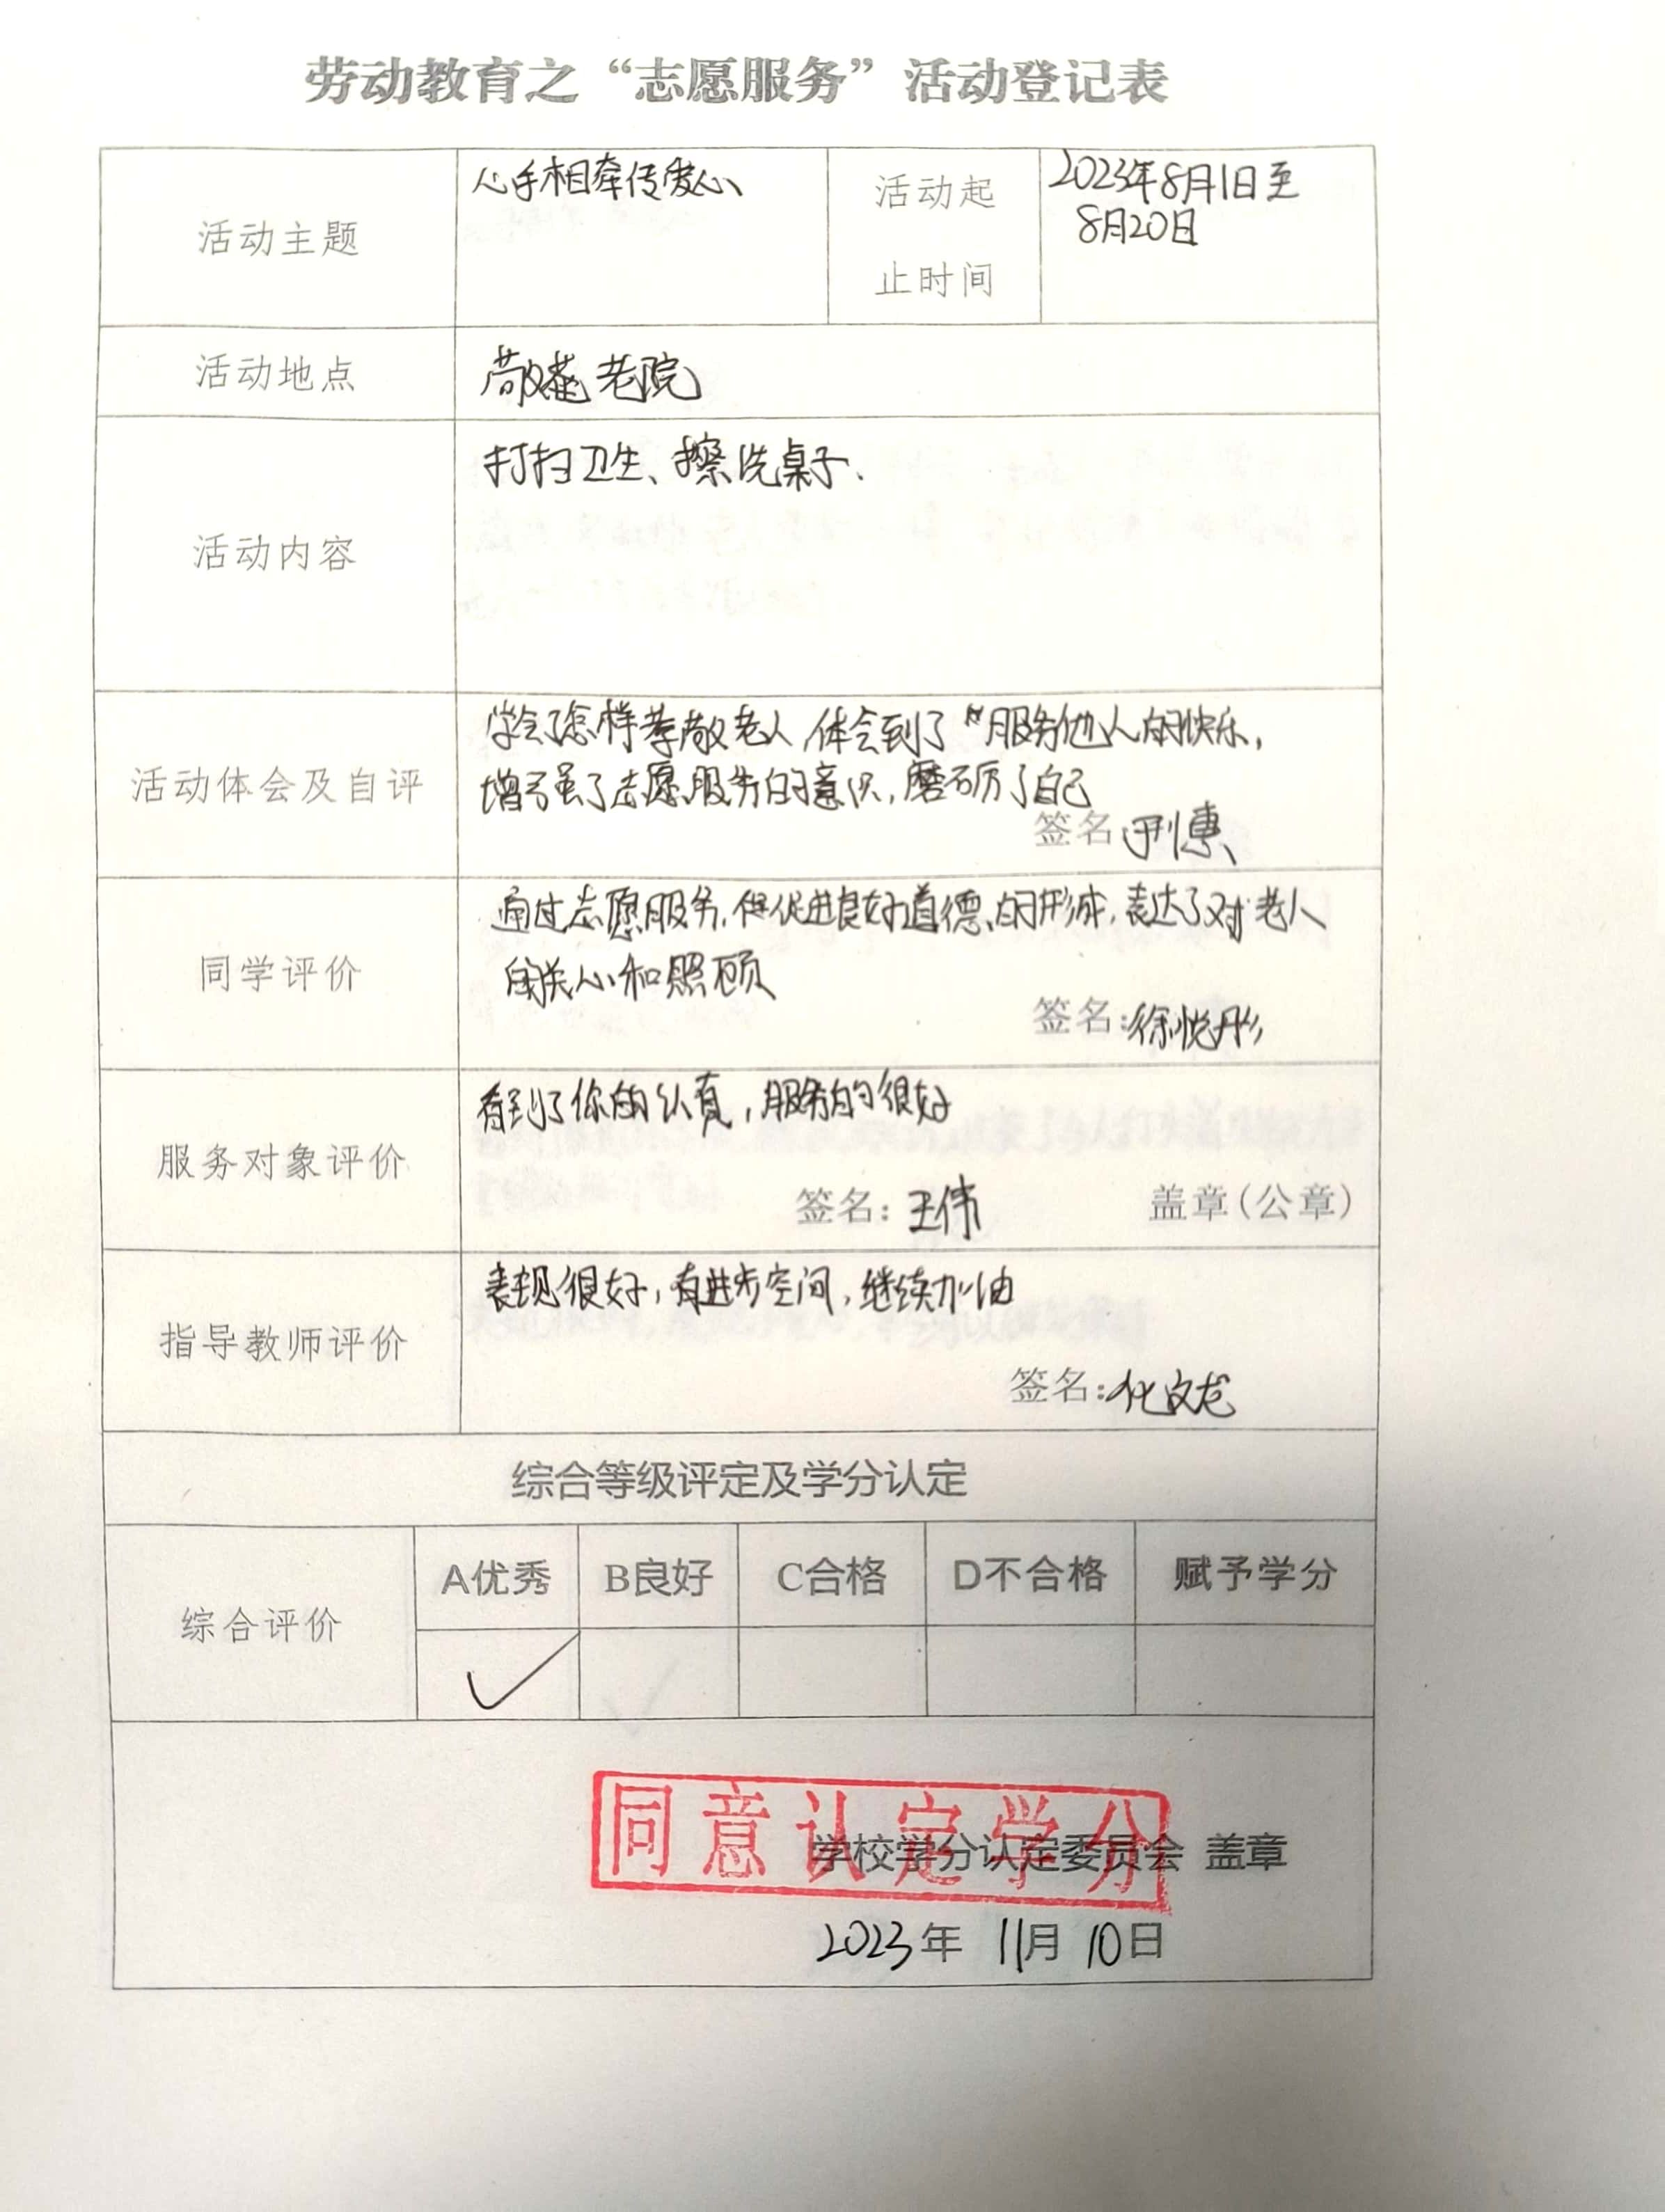 劳动教育之“志愿服务”活动登记表
活动主题
心手相牵传爱心
活动起
止时间
2023年8月1日至
8月20日
活动地点
敬老院
活动内容
打扫卫生、擦洗桌子.
活动体会及自评
学会了怎样孝敬老人,体会到了“服务他人的快乐,
增强了志愿服务的意识,磨砺了自己
签名
同学评价
通过志愿服务,促进良好道德的形成,表达了对老人
的关心和照顾
签名:徐悦彤
服务对象评价
看到了你的认真,服务的很好
签名:王伟
盖章(公章)
指导教师评价
表现很好,有进步空间,继续加油
签名:化文龙
综合等级评定及学分认定
综合评价
A优秀
B良好
C合格
D不合格
赋予学分
同意认定学分
学校学分认定委员会 盖章
2023年 11月 10日